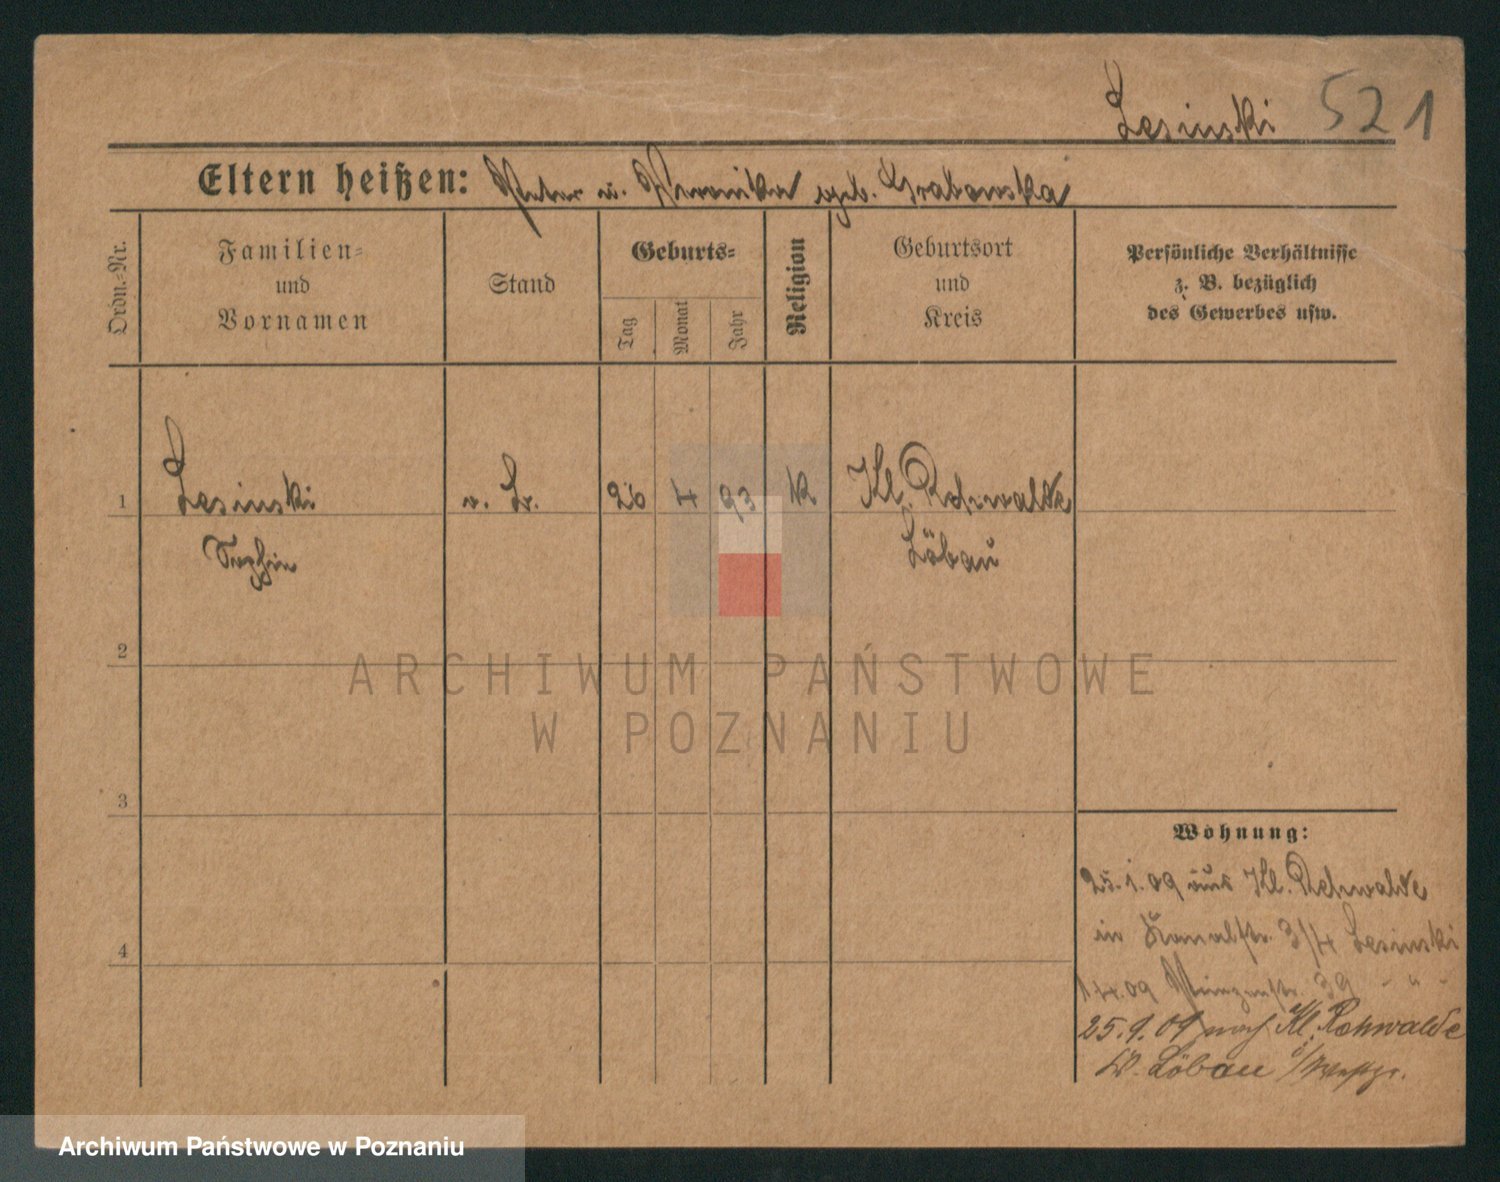 Lesinski 521
Eltern heißen: Peter u. Veronika geb. Grabowska
Ordn.-Nr.
Familien-
und
Vornamen
Stand
Geburts-
Tag
Monat
Jahr
Religion
Geburtsort
und
Kreis
Persönliche Verhältnisse
z. B. bezüglich
des Gewerbes usw.
1 Lesinski 26 4 93 K Kl. Rehwalde
Sophie Löbau
2
ARCHIWUM PAŃSTWOWE
W POZNANIU
3
Wohnung:
25.1.09 aus Kl. Rehwalde
in Kanalstr. 3/4 Lesinski
4
1.4.09 Prinzenstr. 39 - " -
25.9.09 nach Kl. Rehwalde
Löbau i/Westpr.
Archiwum Państwowe w Poznaniu